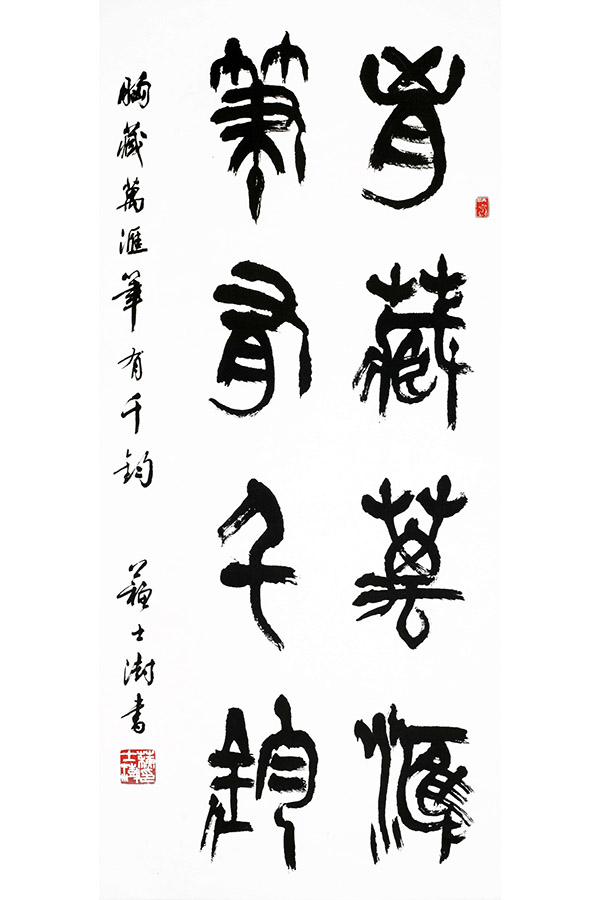 胸藏萬滙
筆有千鈞
胸藏萬滙筆有千鈞 蘇士澍書